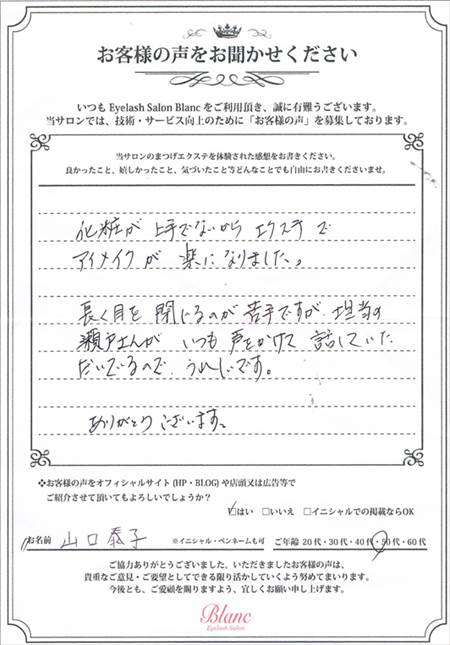 お客様の声をお聞かせください
いつも Eyelash Salon Blanc をご利用頂き、誠に有難うございます。
当サロンでは、技術・サービス向上のために「お客様の声」を募集しております。
当サロンのまつげエクステを体験された感想をお書きください。
良かったこと、嬉しかったこと、気づいたこと等どんなことでも自由にお書きくださいませ。
化粧が上手でないからエクステで
アイメイクが楽になりました。
長く目を閉じるのが苦手ですが、担当の
瀬戸さんがいつも声をかけて話していた
だいているので、うれしいです。
ありがとうございます。
❖お客様の声をオフィシャルサイト(HP・BLOG)や店頭又は広告等で
ご紹介させて頂いてもよろしいでしょうか?
☑はい □いいえ □イニシャルでの掲載ならOK
お名前 山口泰子 ※イニシャル・ペンネームも可 ご年齢 20代・30代・40代・50代・60代
ご協力ありがとうございました。いただきましたお客様の声は、
貴重なご意見・ご要望としてできる限り活かしていくよう努めてまいります。
今後とも、ご愛顧を賜りますよう、宜しくお願い申し上げます。
Blanc
Eyelash Salon